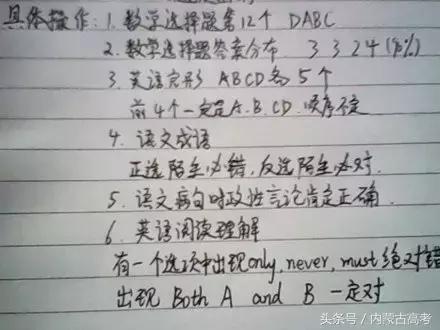 具体操作：1. 数学选择题第12个 DABC
2. 数学选择题答案分布 3 3 2 4 (90%)
3. 英语完形 ABCD各5个
前4个一定是A.B.CD.顺序不定
4. 语文成语
正选陌生必错，反选陌生必对.
5. 语文病句时政性言论肯定正确.
6. 英语阅读理解
有一个选项中出现only, never, must 绝对错
出现 Both A and B 一定对
头条号 / 内蒙古高考